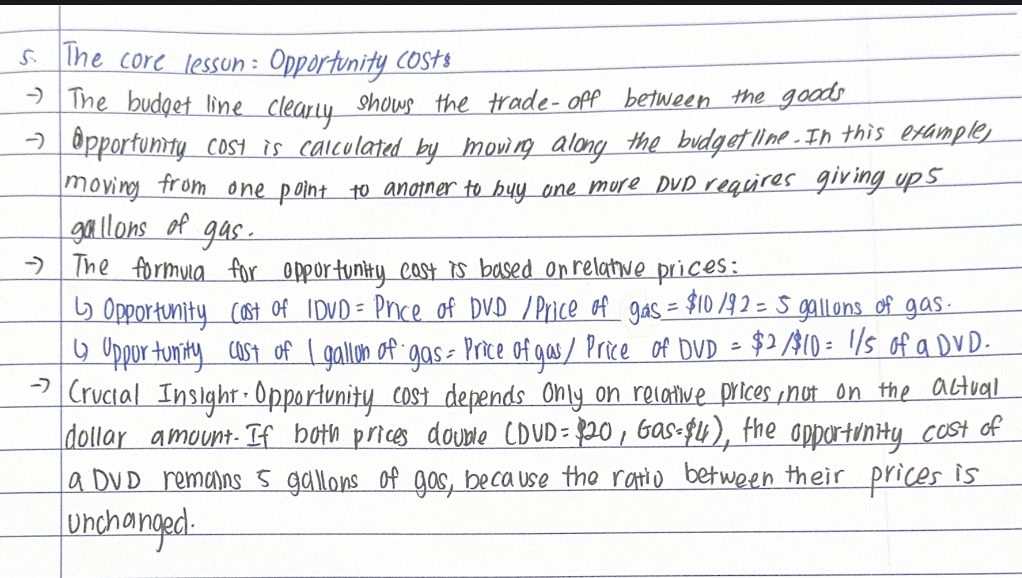 5. The core lesson: Opportunity costs
→ The budget line clearly shows the trade-off between the goods
→ Opportunity cost is calculated by moving along the budget line. In this example,
moving from one point to another to buy one more DVD requires giving up 5
gallons of gas.
→ The formula for opportunity cost is based on relative prices:
↳ Opportunity cost of 1DVD = Price of DVD / Price of gas = $10/$2 = 5 gallons of gas.
↳ Opportunity cost of 1 gallon of gas = Price of gas / Price of DVD = $2/$10 = 1/5 of a DVD.
→ Crucial Insight: Opportunity cost depends only on relative prices, not on the actual
dollar amount. If both prices double (DVD = $20, Gas=$4), the opportunity cost of
a DVD remains 5 gallons of gas, because the ratio between their prices is
unchanged.